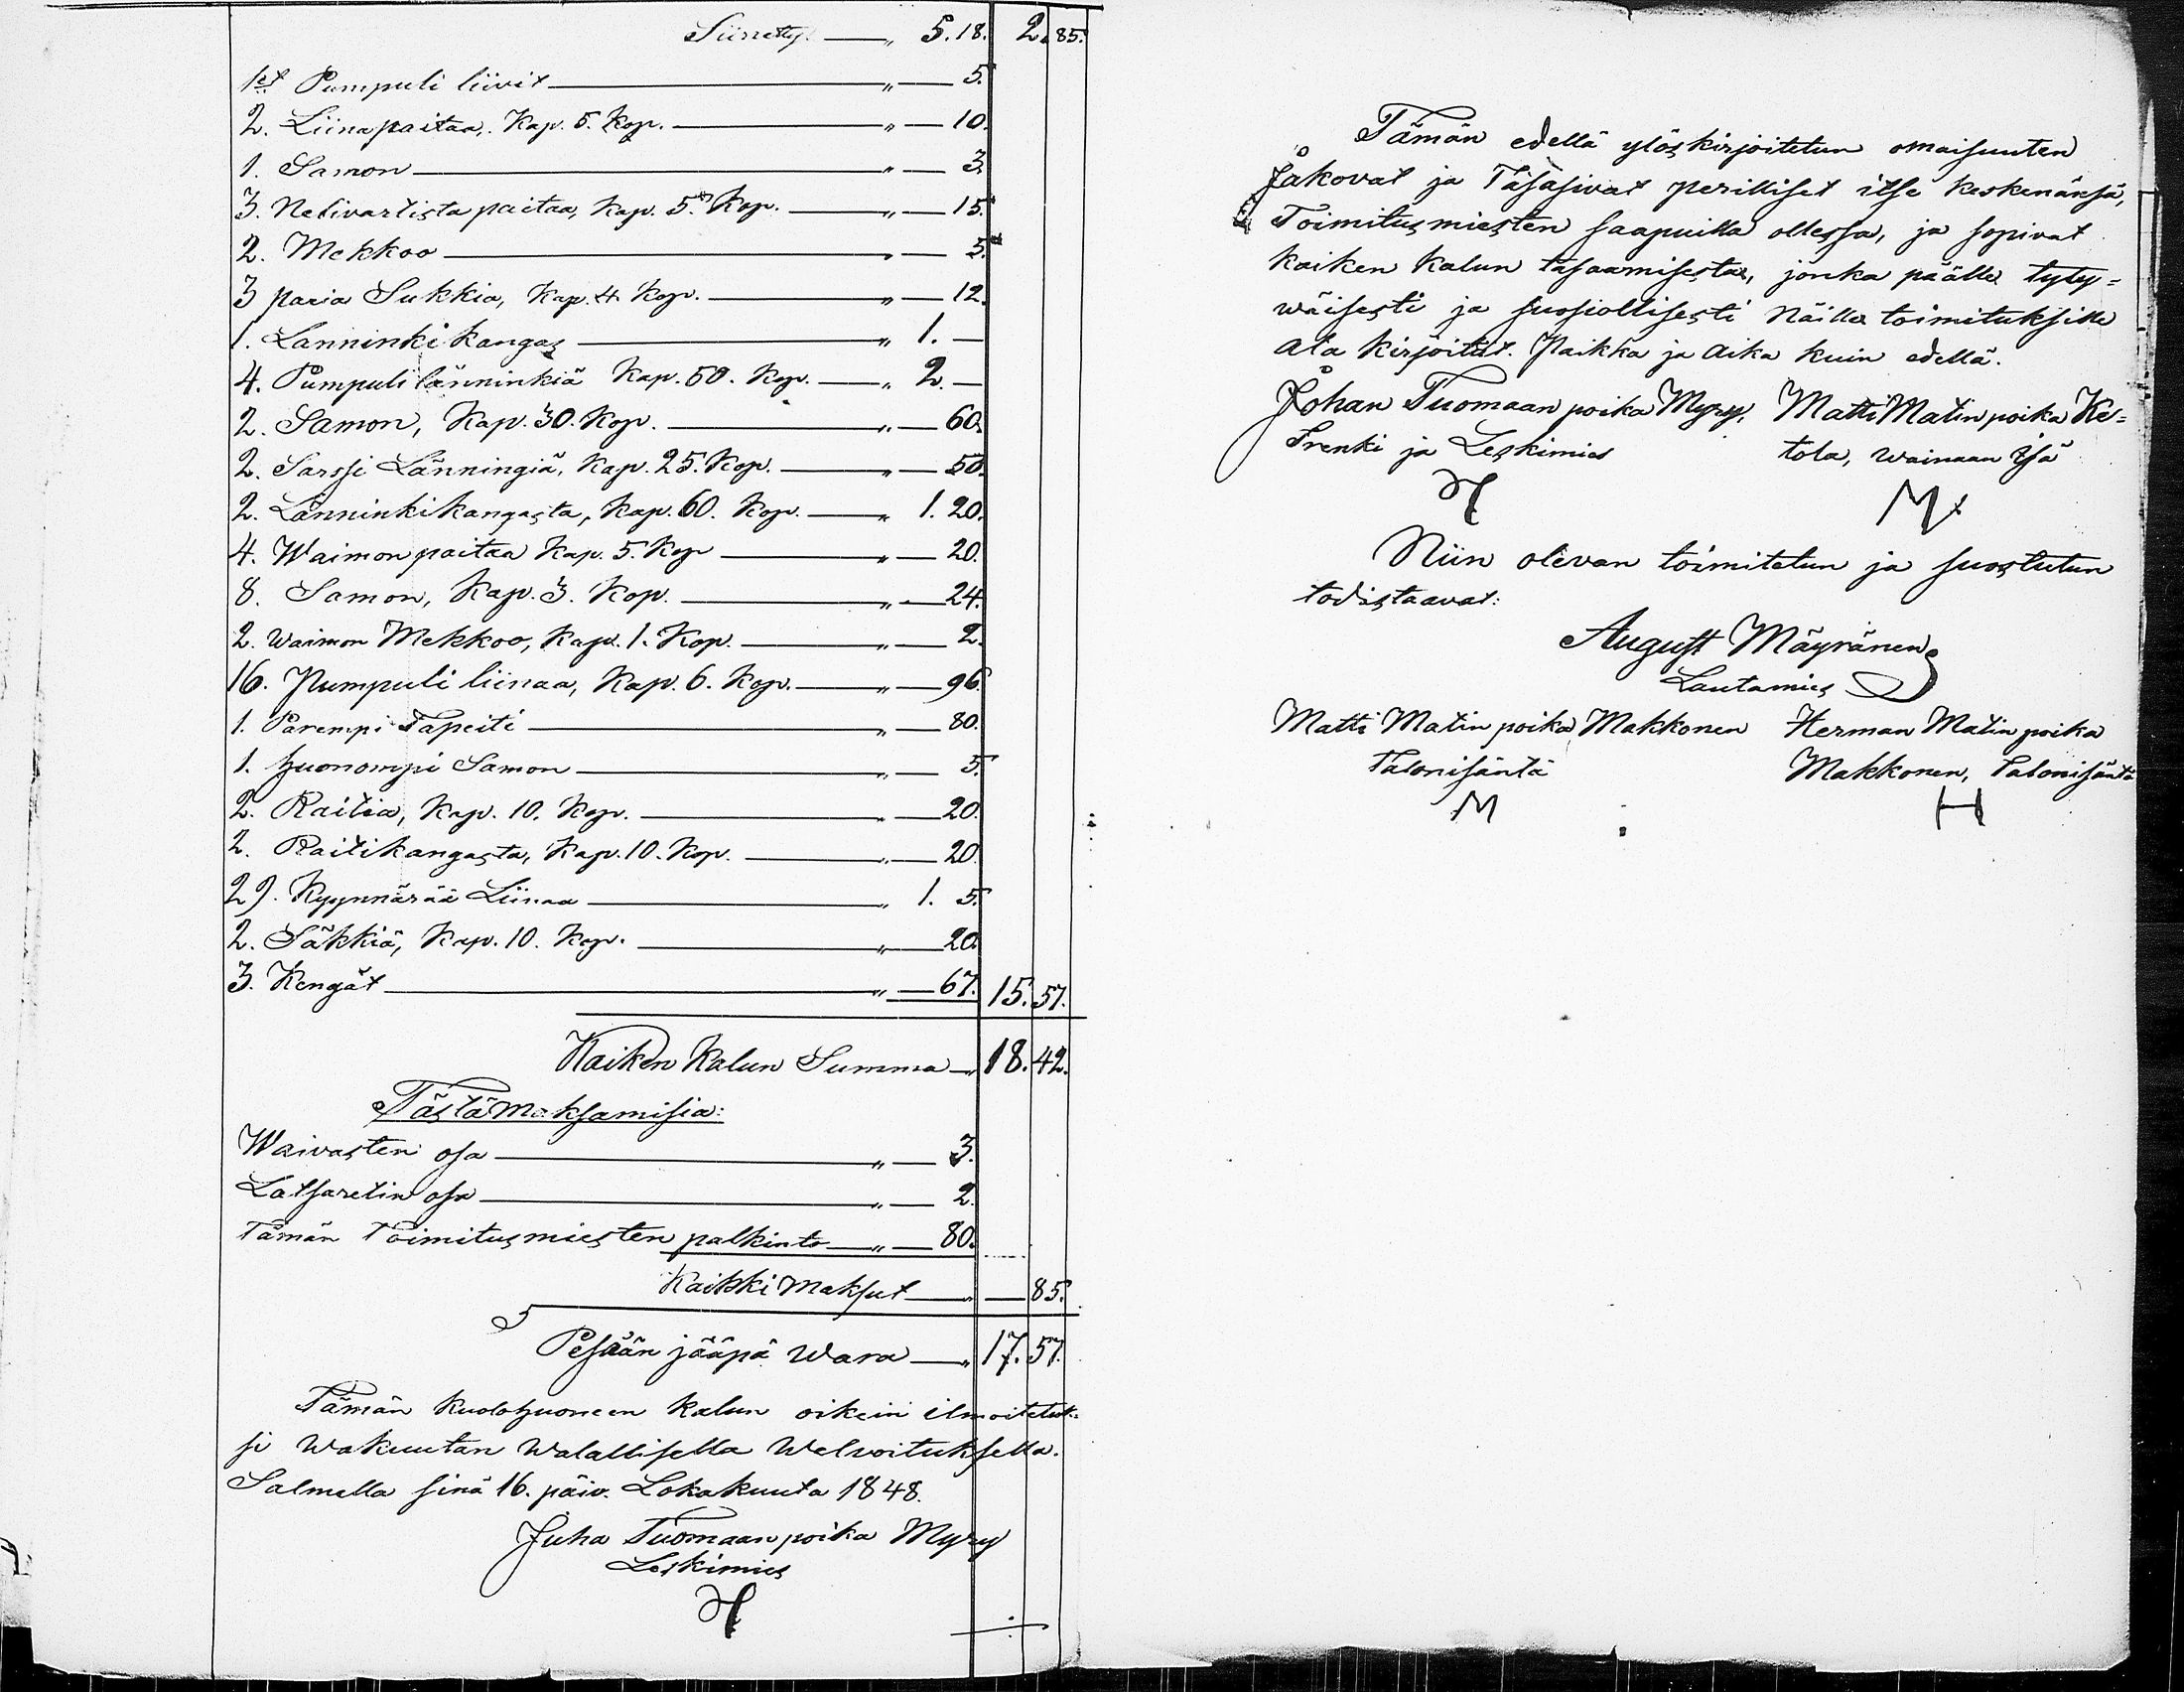 Siirretty. — „ 5. 18. 2. 85.
1et Pumpuli liivit — „ — 5.
2. Liinapaitaa, Kap. 5. Kop. — „ — 10.
1. Samon — „ — 3.
3. Netivartista paitaa, Kap. 5. Kop. — „ — 15.
2. Mekkoo — „ — 5.
3 paria Sukkia, Kap. 4 Kop. — „ — 12.
1. Lanninki kangas — „ 1. —
4. Pumpuli länninkiä Kap. 50. Kop. — „ 2. —
2. Samon, Kap. 30. Kop. — „ — 60.
2. Sarssi Länningiä, Kap. 25. Kop. — „ — 50.
2. Länninkikangasta, Kap. 60. Kop. — „ 1. 20.
4. Waimon paitaa Kap. 5. Kop — „ — 20.
8. Samon, Kap. 3. Kop. — „ — 24.
2. Waimon Mekkoo, Kap. 1. Kop. — „ — 2.
16. Pumpuli liinaa, Kap. 6. Kop. — „ — 96.
1. Parempi Tapeiti — „ — 80.
1. huonompi Samon — „ — 5.
2. Raitia, Kap. 10. Kop. — „ — 20.
2. Raitikangasta, Kap. 10. Kop. — „ — 20.
29. Kyynnärää Liinaa — „ 1. 5.
2. Säkkiä, Kap. 10. Kop. — „ — 20.
3. Kengät — „ — 67. 15. 57.
Kaiken Kalun Summa — „ 18. 42.
Tästä maksamisia:
Waivasten osa — „ — 3.
Latsaretin osa — „ — 2.
Tämän Toimitusmiesten palkinto — „ — 80.
Kaikki Maksut — „ — 85.
Pesään jääpä Wara — „ 17. 57.
Tämän Kuolohuoneen Kalun oikein ilmoitetuk-
si Wakuutan Walallisella Welvoituksella.
Salmella sinä 16. päiv. Lokakuuta 1848.
Juha Tuomaan poika Myry
Leskimies
Tämän edellä ylöskirjoitetun omaisuuten
Jakovat ja Tasasivat perilliset itse keskenänsä,
Toimitusmiesten saapuilla ollessa, ja sopivat
kaiken Kalun tasaamisesta, jonka päälle tyty=
wäisesti ja suosiollisesti Näille toimituksille
ala kirjoitit. Paikka ja Aika kuin edellä.
Johan Tuomaan poika Myry, Matti Matin poika Ke=
Trenki ja Leskimies tola, Wainaan isä
M
Niin olevan toimitetun ja suostutun
todistaavat:
August Mäyränen
Lautamies
Matti Matin poika Makkonen Herman Matin poika
Talonisäntä Makkonen, Talonisäntä
M H